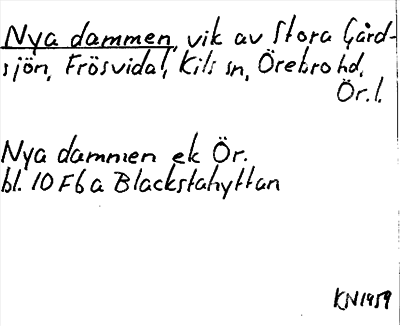 Nya dammen, vik av Stora Gård-
sjön, Frösvidal, Kils sn, Örebro hd,
Ör.l.
Nya dammen ek Ör.
bl. 10 F 6 a Blackstahyttan
KN 1959